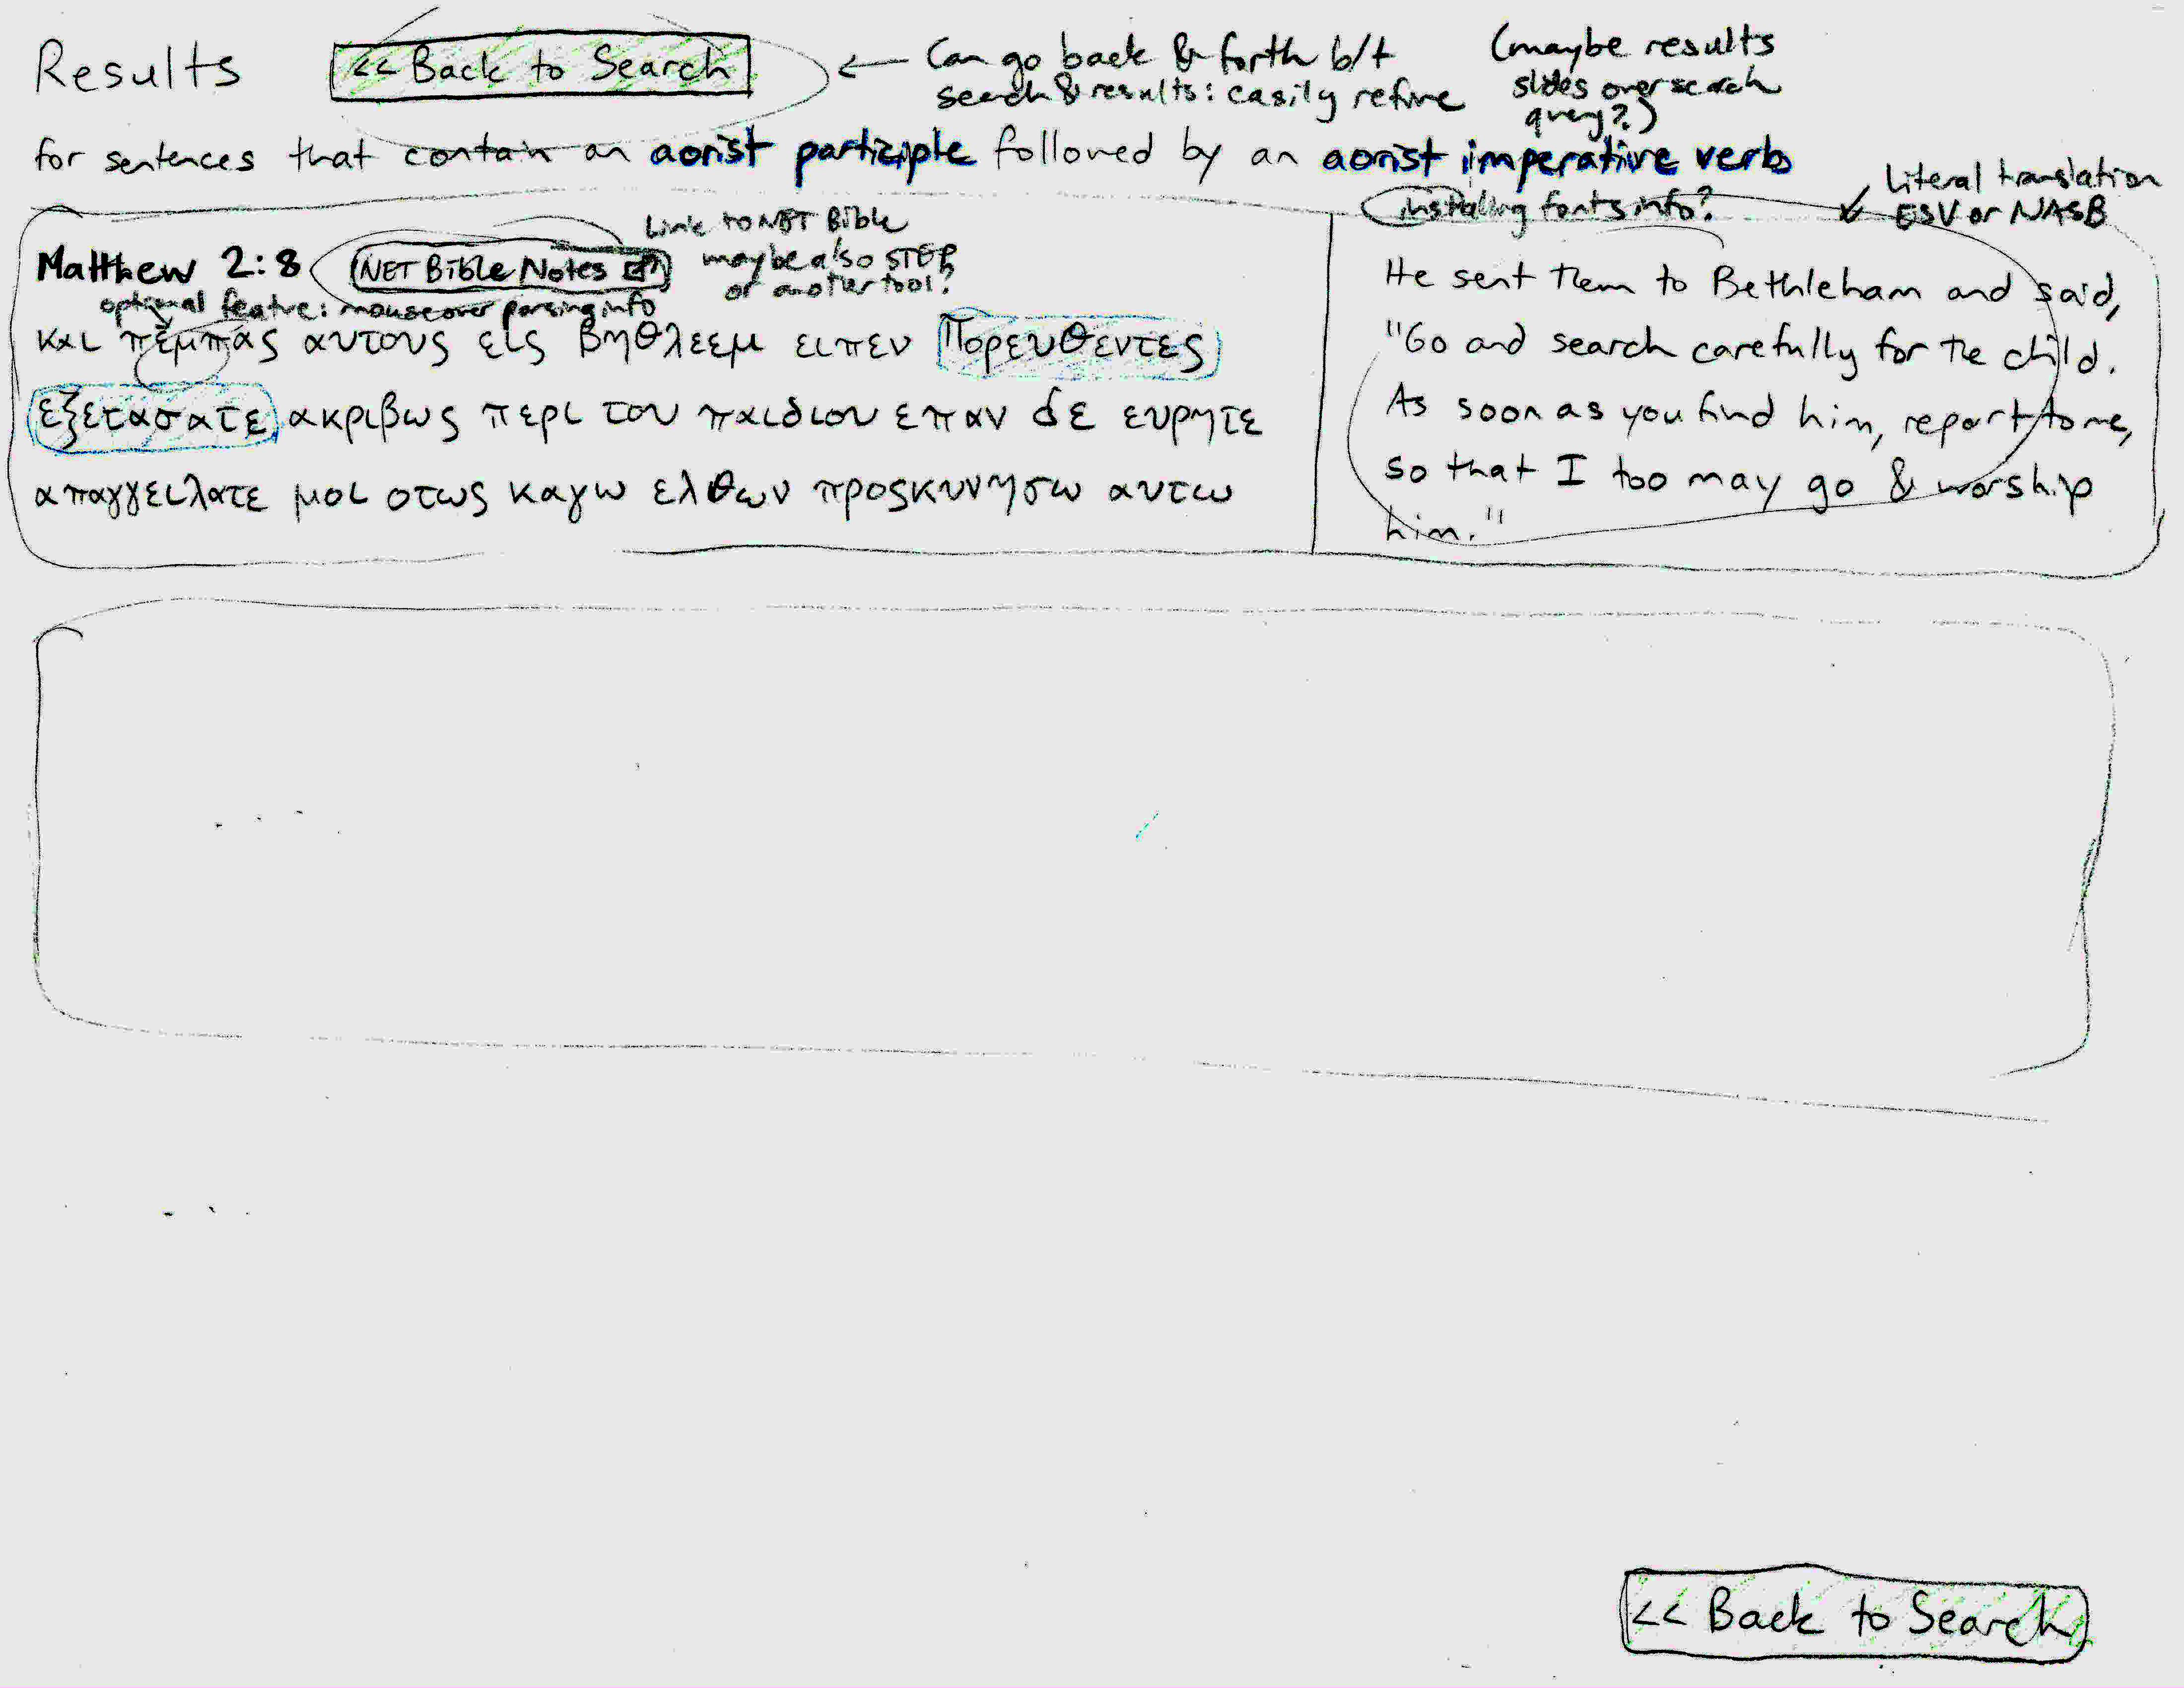 Results
<< Back to Search
← Can go back & forth b/t
search & results: easily refine
(maybe results
slides over search
query?)
for sentences that contain an aorist participle followed by an aorist imperative verb
Literal translation
ESV or NASB
installing fonts info?
Link to NET Bible
maybe also STEP
or another tool?
Matthew 2:8
NET Bible Notes
optional feature: mouseover parsing info
και πεμπας αυτους εις βηθλεεμ ειπεν Πορευθεντες
εξετασατε ακριβως περι του παιδιου επαν δε ευρητε
απαγγειλατε μοι οτως καγω ελθων προςκυνησω αυτω
He sent them to Bethleham and said,
"Go and search carefully for the child.
As soon as you find him, report to me,
so that I too may go & worship
him."
<< Back to Search